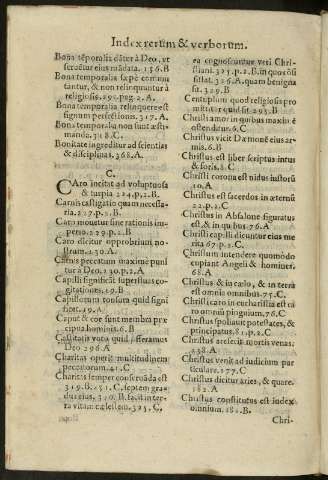 Index rerum & verborum.
Bona tēporalia dātur à Deo, vt
seruētur eius mādata. 156.B
Bona temporalia sæpè commu
tantur, & non relinquuntur à
religiosis. 295. pag. 2. A.
Bona temporalia relinquere est
signum perfessionis. 317. A.
Bona temporalia non sunt æsti-
manda. 318. C.
Bonitate ingreditur ad scientias
& disciplinas. 368. A.
C.
CAro incitat ad voluptuosa
& turpia 224. p. 2. B.
Carnis castigatio quàm necessa-
ria. 227. p. 2. B.
Caro mouetur sine rationis im-
perio. 229. p. 2. B
Caro dicitur opprobrium no-
strum. 230. A.
Carnis peccatum maximè puni
tur à Deo. 230. p. 2. A
Capilli significāt superfluas co-
gitationes. 19. B
Capillorum tonsura quid signi
ficet. 19. A
Caput & cor sunt membra præ
cipua hominis. 6. B
Castitatis vota quid offeramus
Deo 296. A
Charitas operit multitudinem
peccatorum. 41. C
Charitas semper conseruāda est
319. B. 251. C. septem gra-
dus eius. 320. B. facit in ter-
ra vitam cælestem. 323. C.
ea cognoscuntur veri Chri-
stiani. 325. p. 2. B. in quos ōsi
sistat. 326. A. quàm benigna
sit. 329. B
Centuplum quod religiosis pro
mittitur quid sit 295. B
Christi amor in quibus maximè
ostenditur. 6. C
Christus vicit Dæmonē eius ar-
mis. 6. B
Christus est liber scriptus intus
& foris. 8. C
Christi corona est nidus iustorū
10. A
Christus est sacerdos in æternū
22. p. 2. C
Christus in Absalone figuratus
est, & in quibus. 76. A
Christi capilli dicuntur eius me
rita 67. p. 2. C.
Christum intendere quomodo
cupiant Angeli & homines.
68. A
Christus & in cælo, & in terra
est omnia omnibus 75. C.
Christi caro in eucharistia est ca
ro omniū pinguium. 76. C
Christus spoliauit potestates, &
principatus. 81. p. 2. C
Christus accelerat mortis venas.
238. A
Christus venit ad iudicium par
ticulare. 177. C
Christus dicitur aries, & quare.
182. A
Christus constitutus est iudex
omnium. 182. B.
Chri-